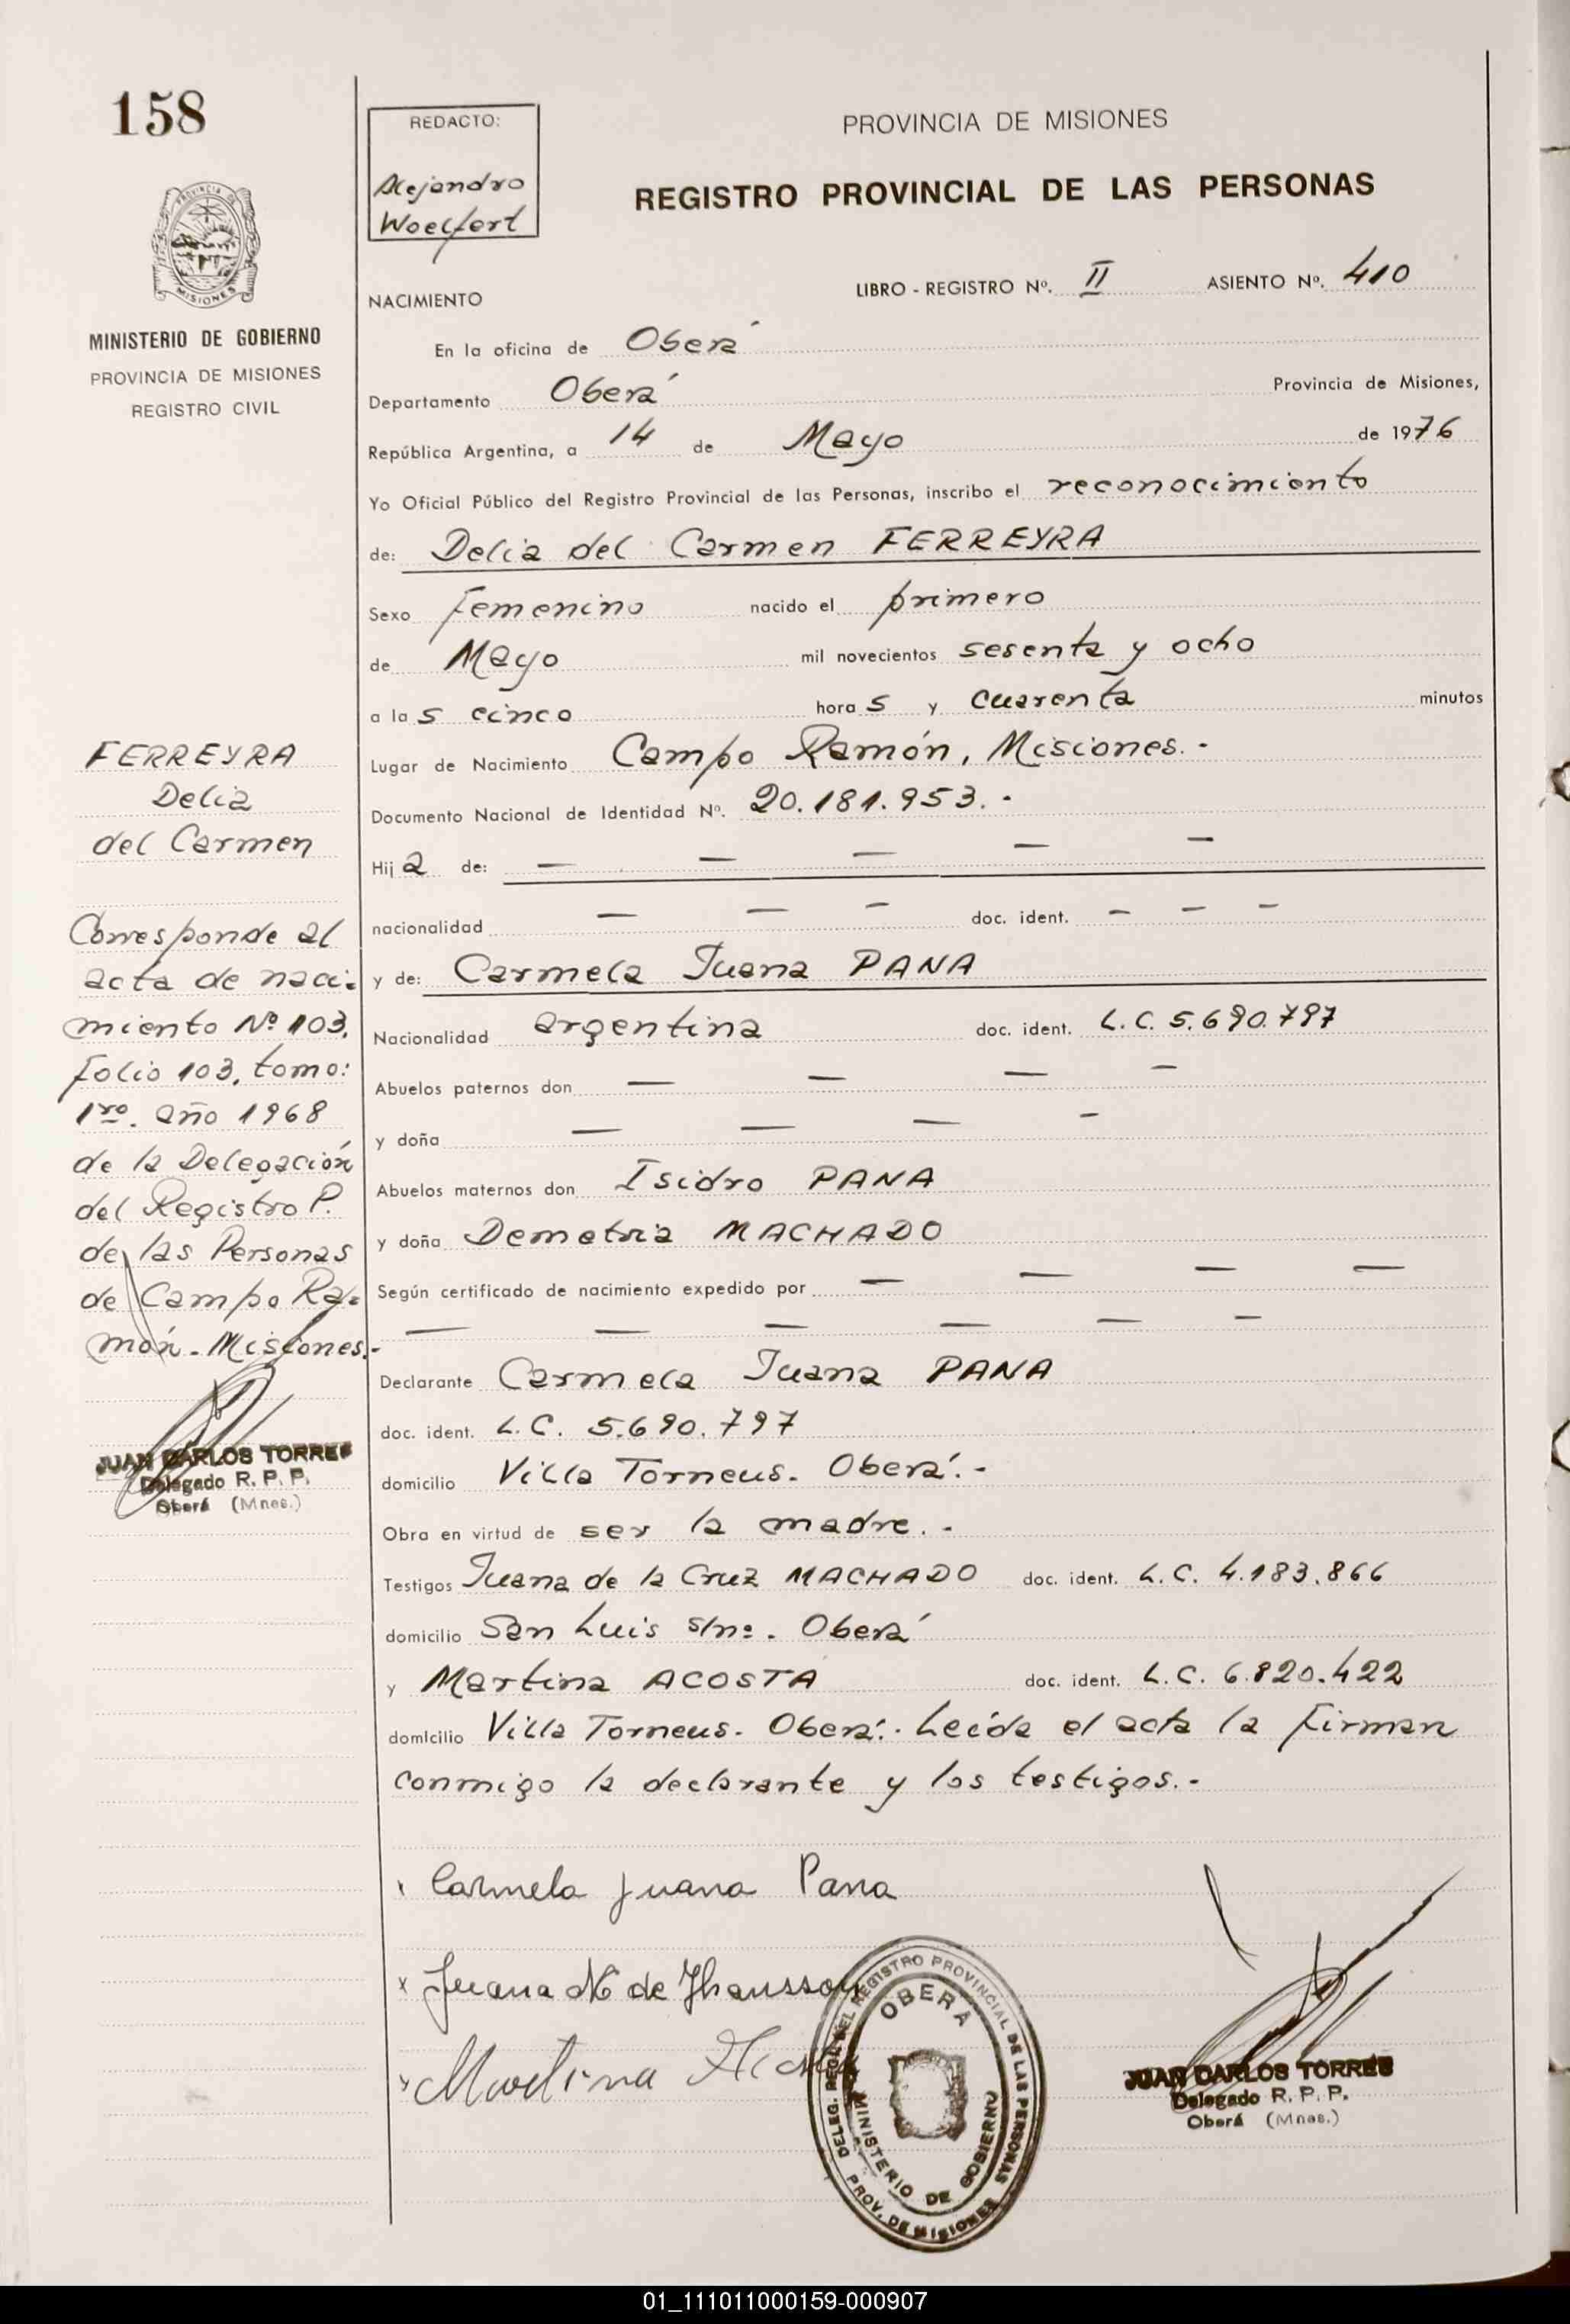 158
PROVINCIA DE
MISIONES
MINISTERIO DE GOBIERNO
PROVINCIA DE MISIONES
REGISTRO CIVIL
FERREYRA
Delia
del Carmen
Corresponde al
acta de naci-
miento Nº 103,
folio 103, tomo:
1ro. año 1968
de la Delegación
del Registro P.
de las Personas
de Campo Ra-
món - Misiones.-
JUAN CARLOS TORRES
Delegado R. P. P.
Oberá (Mnes.)
REDACTO:
Alejandro
Woelfert
PROVINCIA DE MISIONES
REGISTRO PROVINCIAL DE LAS PERSONAS
LIBRO - REGISTRO Nº. II ASIENTO Nº. 410
NACIMIENTO
En la oficina de Oberá
Departamento Oberá Provincia de Misiones,
República Argentina, a 14 de Mayo de 1976
Yo Oficial Público del Registro Provincial de las Personas, inscribo el reconocimiento
de: Delia del Carmen FERREYRA
Sexo femenino nacido el primero
de Mayo mil novecientos sesenta y ocho
a las cinco horas y cuarenta minutos
Lugar de Nacimiento Campo Ramón, Misiones.-
Documento Nacional de Identidad Nº. 20.181.953.-
Hija de: — — — — —
nacionalidad — — — doc. ident. — — —
y de: Carmela Juana PANA
Nacionalidad argentina doc. ident. L.C. 5.690.797
Abuelos paternos don — — — —
y doña — — — —
Abuelos maternos don Isidro PANA
y doña Demetria MACHADO
Según certificado de nacimiento expedido por — — — —
— — — — — —
Declarante Carmela Juana PANA
doc. ident. L.C. 5.690.797
domicilio Villa Torneus. Oberá.-
Obra en virtud de ser la madre.-
Testigos Juana de la Cruz MACHADO doc. ident. L.C. 4.183.866
domicilio San Luis s/nº. Oberá
y Martina ACOSTA doc. ident. L.C. 6.820.422
domicilio Villa Torneus. Oberá.- Leída el acta la firman
conmigo la declarante y los testigos.-
Carmela Juana Pana
x Juana M de Jhansson
Martina Acosta
DELEG. REGL. DEL REGISTRO PROVINCIAL DE LAS PERSONAS
OBERA
MINISTERIO DE GOBIERNO
PROV. DE MISIONES
JUAN CARLOS TORRES
Delegado R. P. P.
Oberá (Mnes.)
01_111011000159-000907